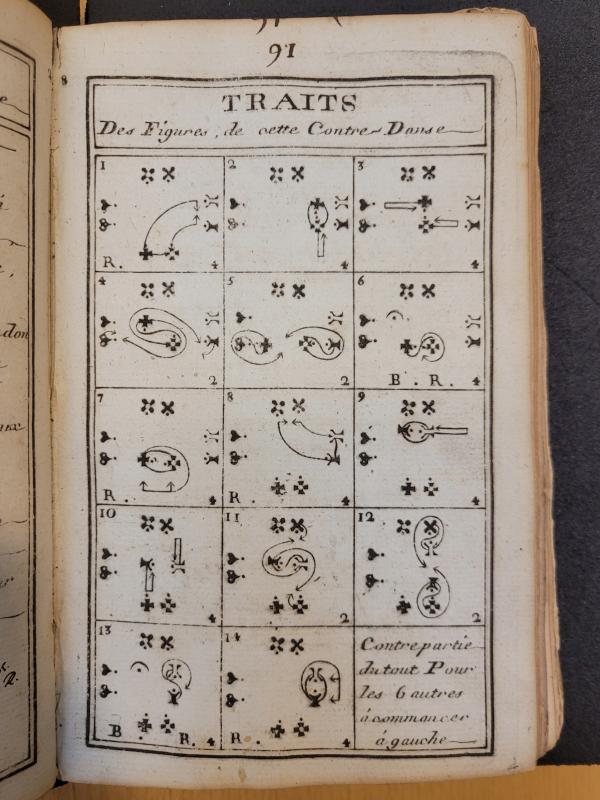 91
8
TRAITS
Des Figures, de cette Contre-Danse
1
R. 4
2
4
3
4
4
2
5
2
6
B. R. 4
7
R. 4
8
R. 4
9
4
10
4
11
2
12
2
13
B R. 4
14
R. 4
Contrepartie
du tout Pour
les 6 autres
à commancer
à gauche
don
R.